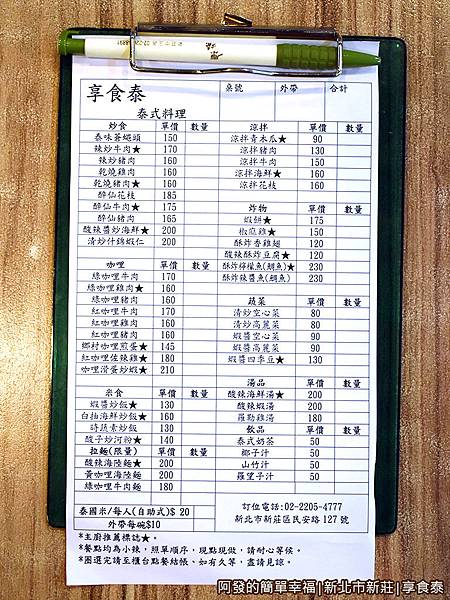 享食泰
泰式料理
桌號 外帶 合計
炒食 單價 數量
泰味蒼蠅頭 150
辣炒牛肉★ 170
辣炒豬肉 160
乾燒雞肉 160
乾燒豬肉★ 160
醉仙花枝 185
醉仙牛肉★ 175
醉仙豬肉 165
酸辣醬炒海鮮★ 200
清炒什錦蝦仁 200
咖哩 單價 數量
綠咖哩牛肉 170
綠咖哩雞肉★ 160
綠咖哩豬肉 160
紅咖哩牛肉 170
紅咖哩雞肉 160
紅咖哩豬肉 160
鄉村咖哩煎蛋★ 145
紅咖哩佐辣雞★ 180
咖哩滑蛋炒蝦★ 210
米食 單價 數量
蝦醬炒飯★ 130
白抽海鮮炒飯★ 160
時蔬素炒飯 130
酸子炒河粉★ 140
拉麵(限量) 單價 數量
酸辣海陸麵★ 200
黃咖哩海陸麵 200
綠咖哩牛肉麵 180
泰國米/每人(自助式)$ 20
外帶每碗$10
涼拌 單價 數量
涼拌青木瓜★ 90
涼拌豬肉 130
涼拌牛肉 150
涼拌海鮮★ 160
涼拌花枝 160
炸物 單價 數量
蝦餅★ 175
椒麻雞★ 150
酥炸香雞翅 120
酸辣酥炸豆腐★ 120
酥炸檸檬魚(鯛魚)★ 230
酥炸辣醬魚(鯛魚) 230
蔬菜 單價 數量
清炒空心菜 80
清炒高麗菜 80
蝦醬空心菜 90
蝦醬高麗菜 90
蝦醬四季豆★ 130
湯品 單價 數量
酸辣海鮮湯★ 200
酸辣蝦湯 200
羅勒雞湯 180
飲品 單價 數量
泰式奶茶 50
椰子汁 50
山竹汁 50
羅望子汁 50
訂位電話:02-2205-4777
新北市新莊區民安路 127 號
*主廚推薦標誌★。
*餐點均為小辣,照單順序,現點現做,請耐心等候。
*圈選完請至櫃台點餐結帳、如有久等,盡請見諒。
阿發的簡單幸福|新北市新莊|享食泰